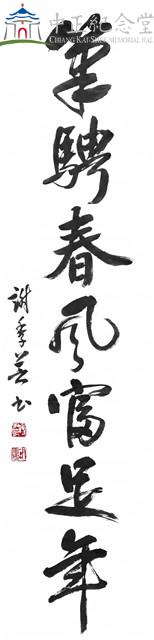 中正紀念堂
CHIANG KAI-SHEK MEMORIAL HALL
筆騁春風富足年
謝季芸書